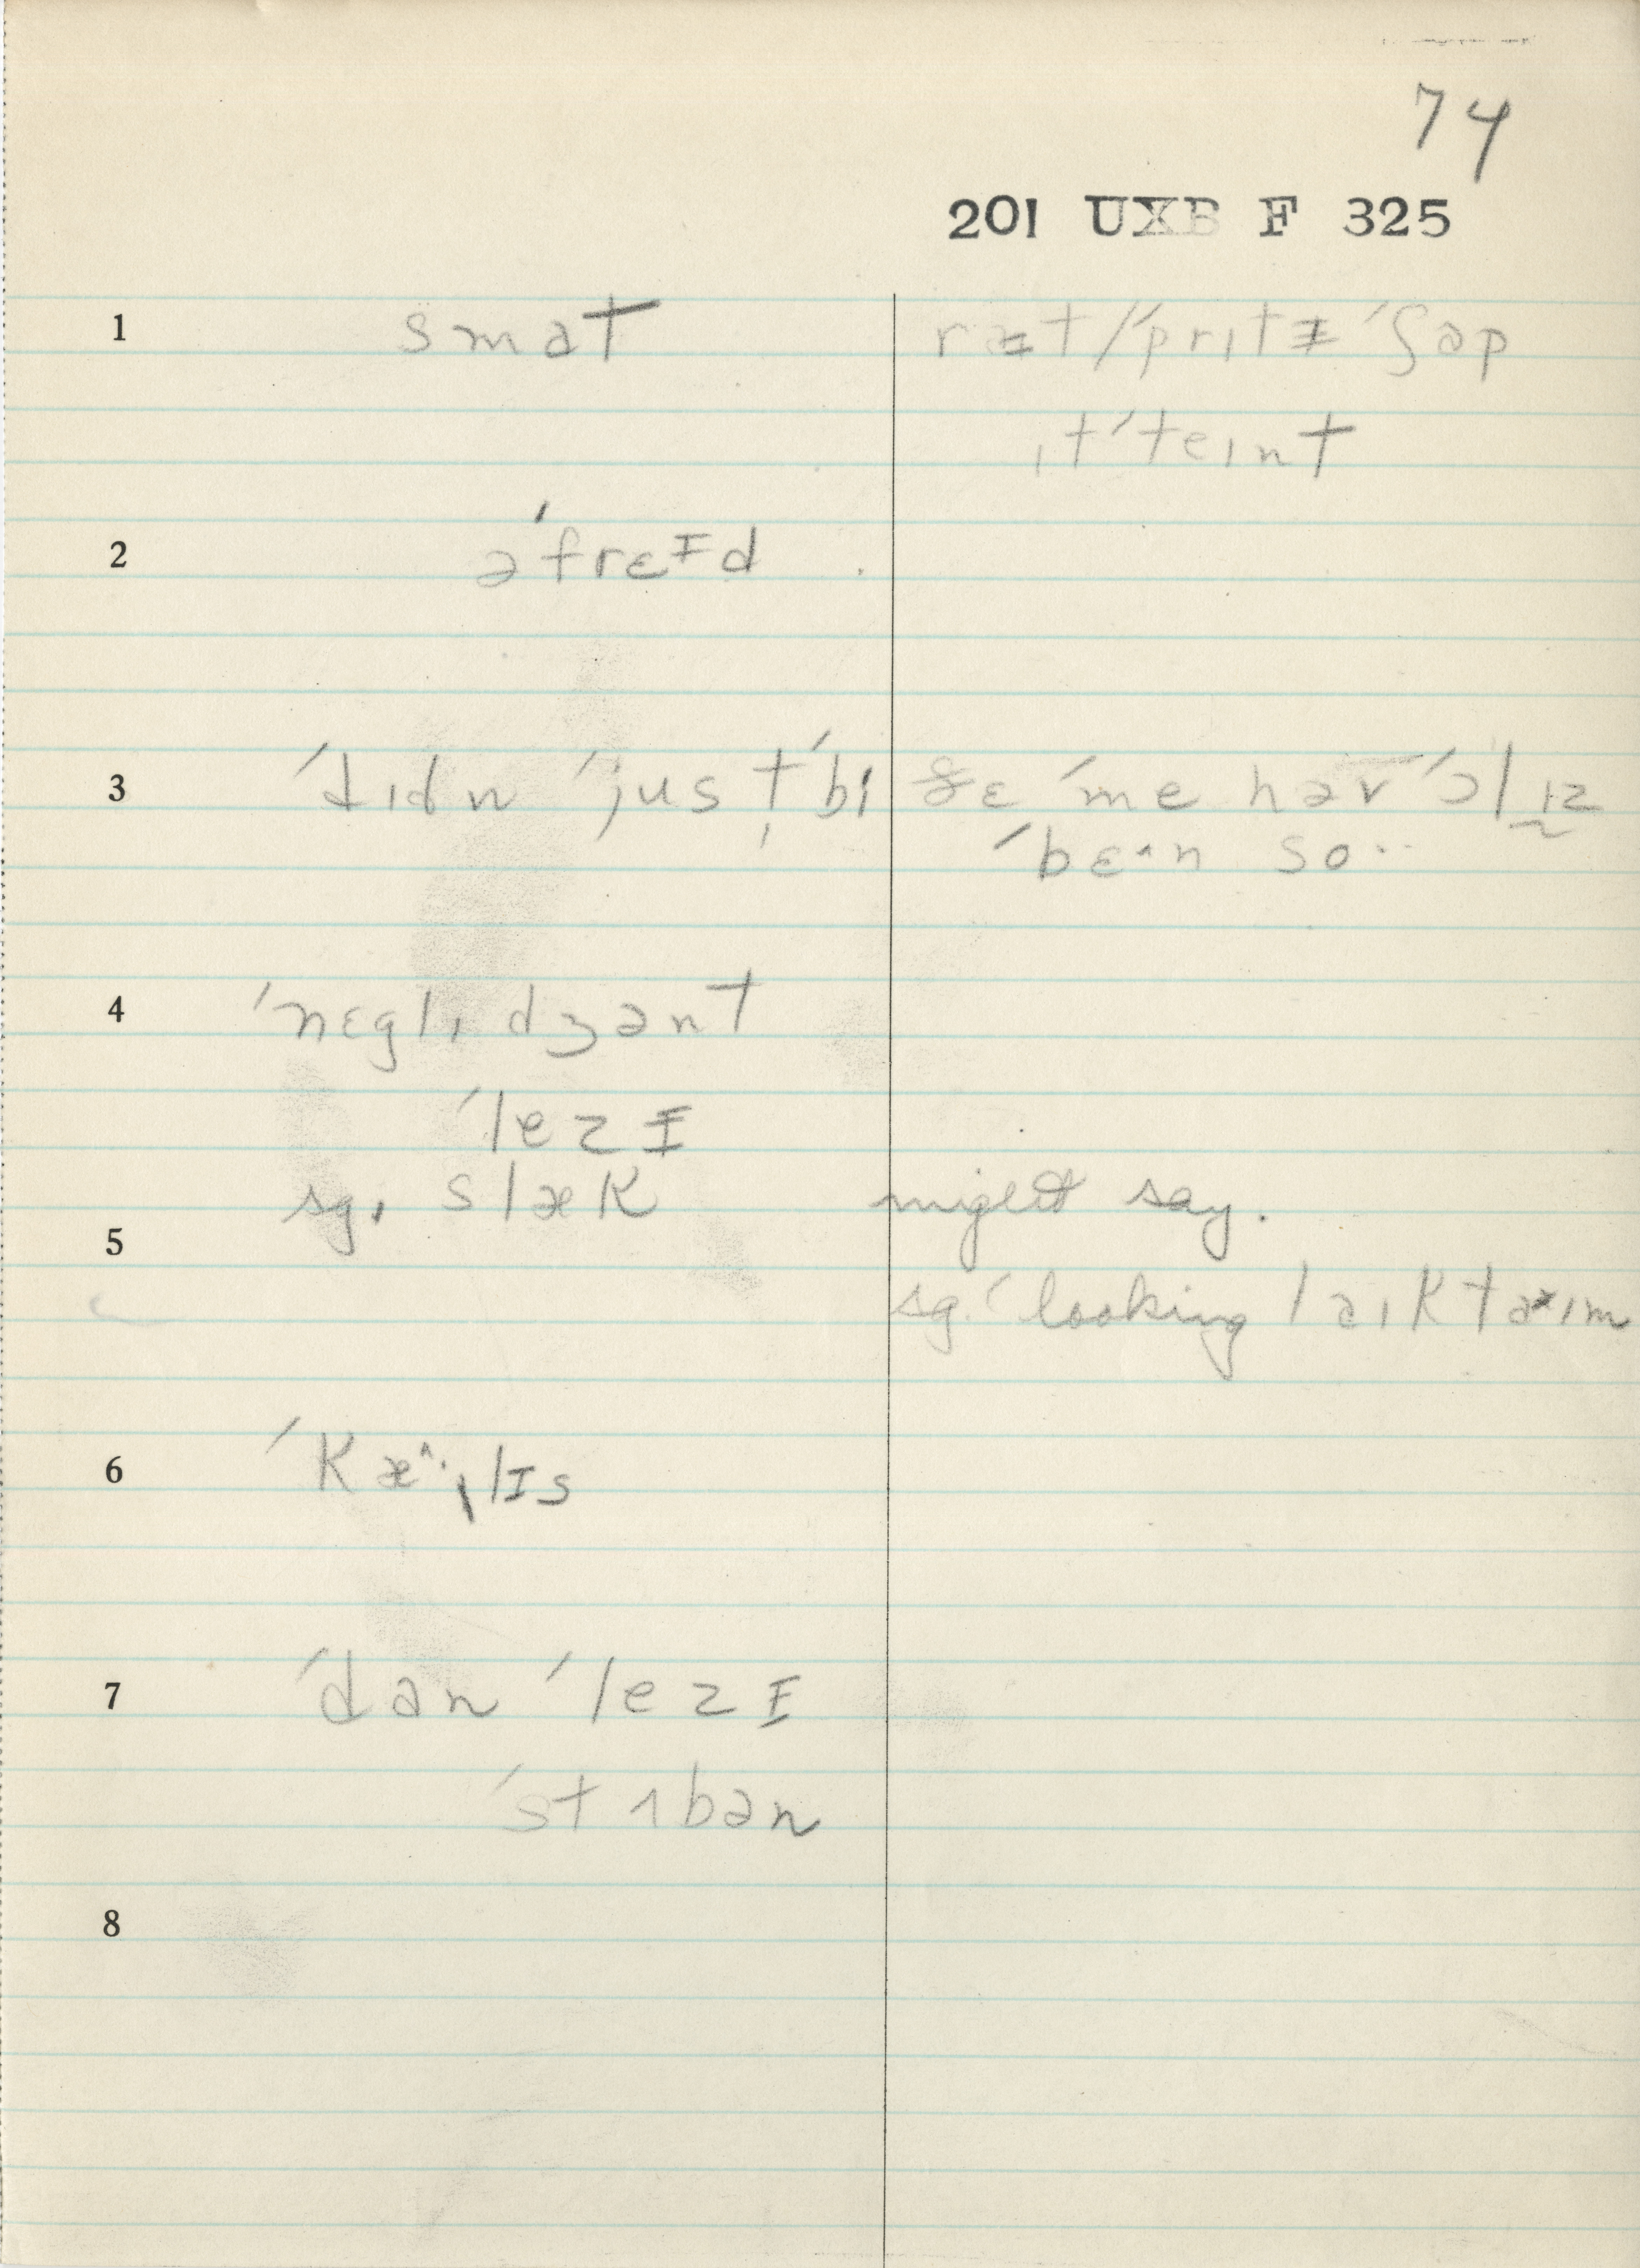 74
201 UXB F 325
1 smat rɪ̵t/ˊprɪtɪ̵ ˊʃap
ɪtˊteɪnt
2 əˊfrɛɪ̵d
3 ˊdɪdn ˊjustˊbi ðɛ ˊme həv ˊɔlɪz
ˊbɛ^n so··
4 ˊnɛglɪdʒənt
ˊlezɪ̵
sg. slæk might say.
5
sg. ˊlooking laɪk taɪm
6 ˊkæ^·lɪs
7 ˊdan ˊlezɪ̵
ˊstʌbən
8